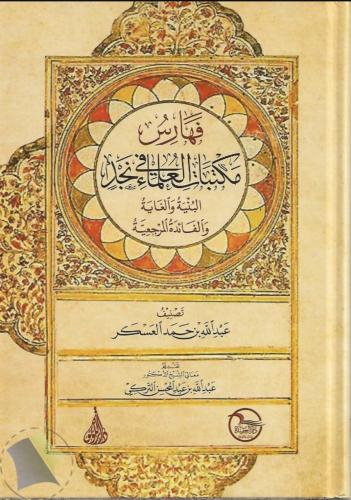 فَهَارِسُ
مَكتَبَاتِ العُلَمَاءِ فِي نَجْدٍ
البُنْيَةُ وَالغَايَةُ
وَالفَائِدَةُ المَرْجِعِيَّةُ
تَصْنِيْفُ
عَبْدُ اللهِ بْنُ حَمَد العَسْكَر
تقديم
معالي الشيخ الدكتور
عَبْد الله بن عَبْد المُحْسِن التركي